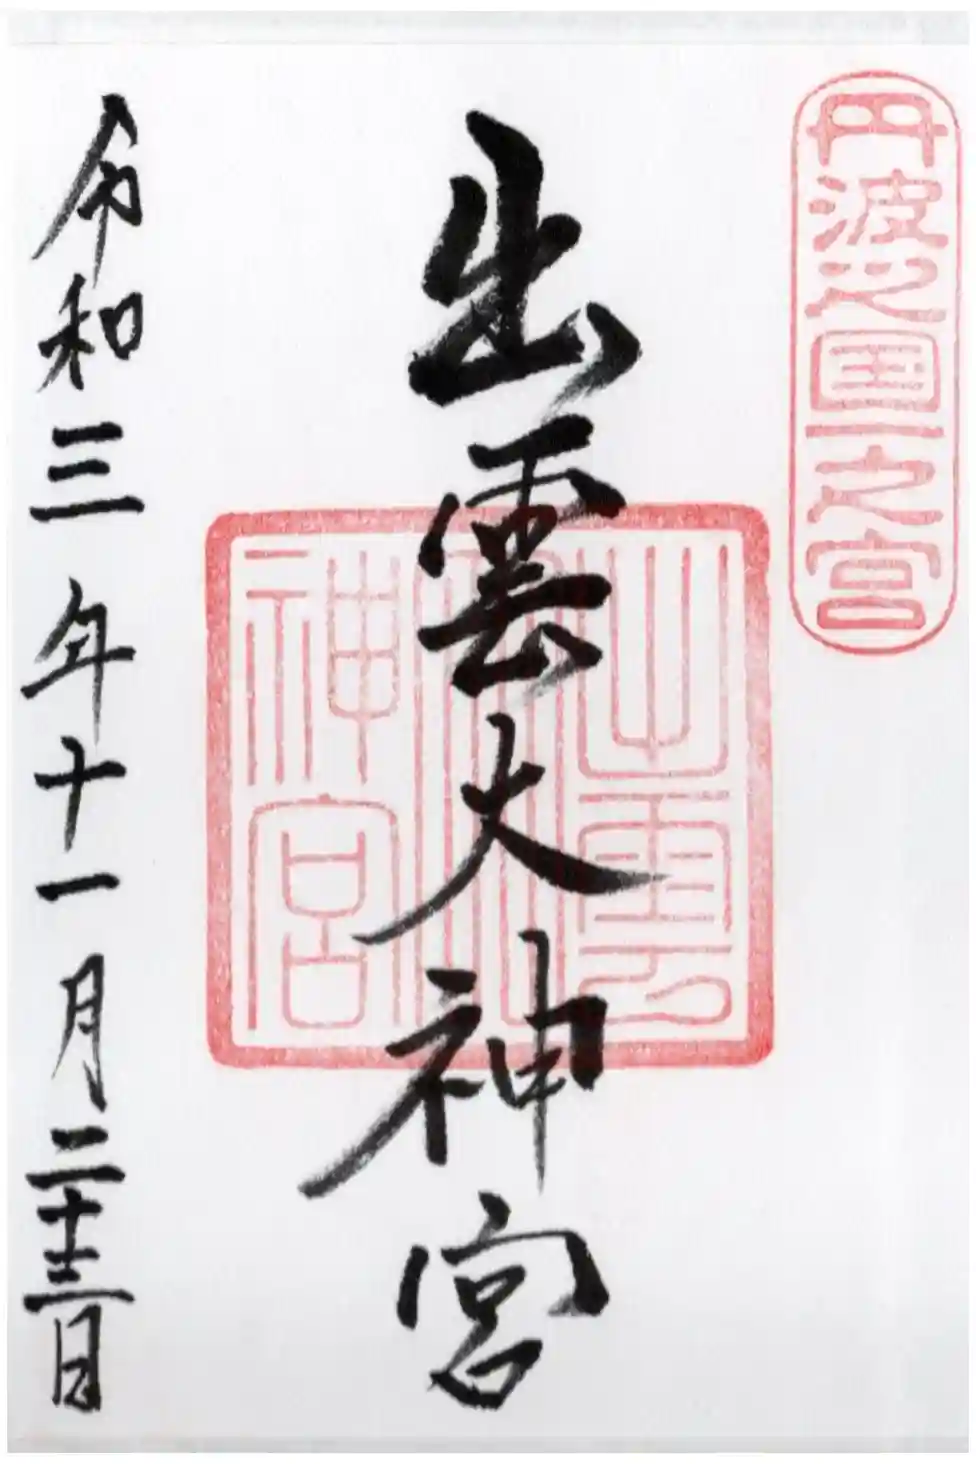 丹波之国一之宮
出雲大神宮
出雲
大
神宮
令和三年十一月二十三日